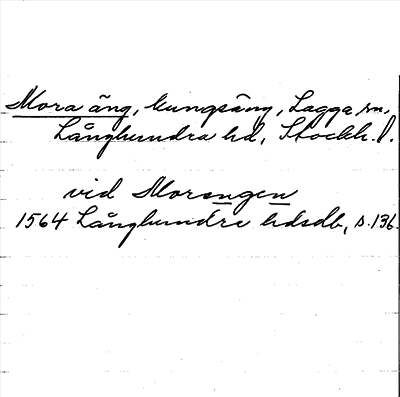 Mora äng, kungsäng, Lagga sn,
Långhundra hd, Stockh. l.
vid Morengen
1564 Långhundre hdsdb, s. 136.